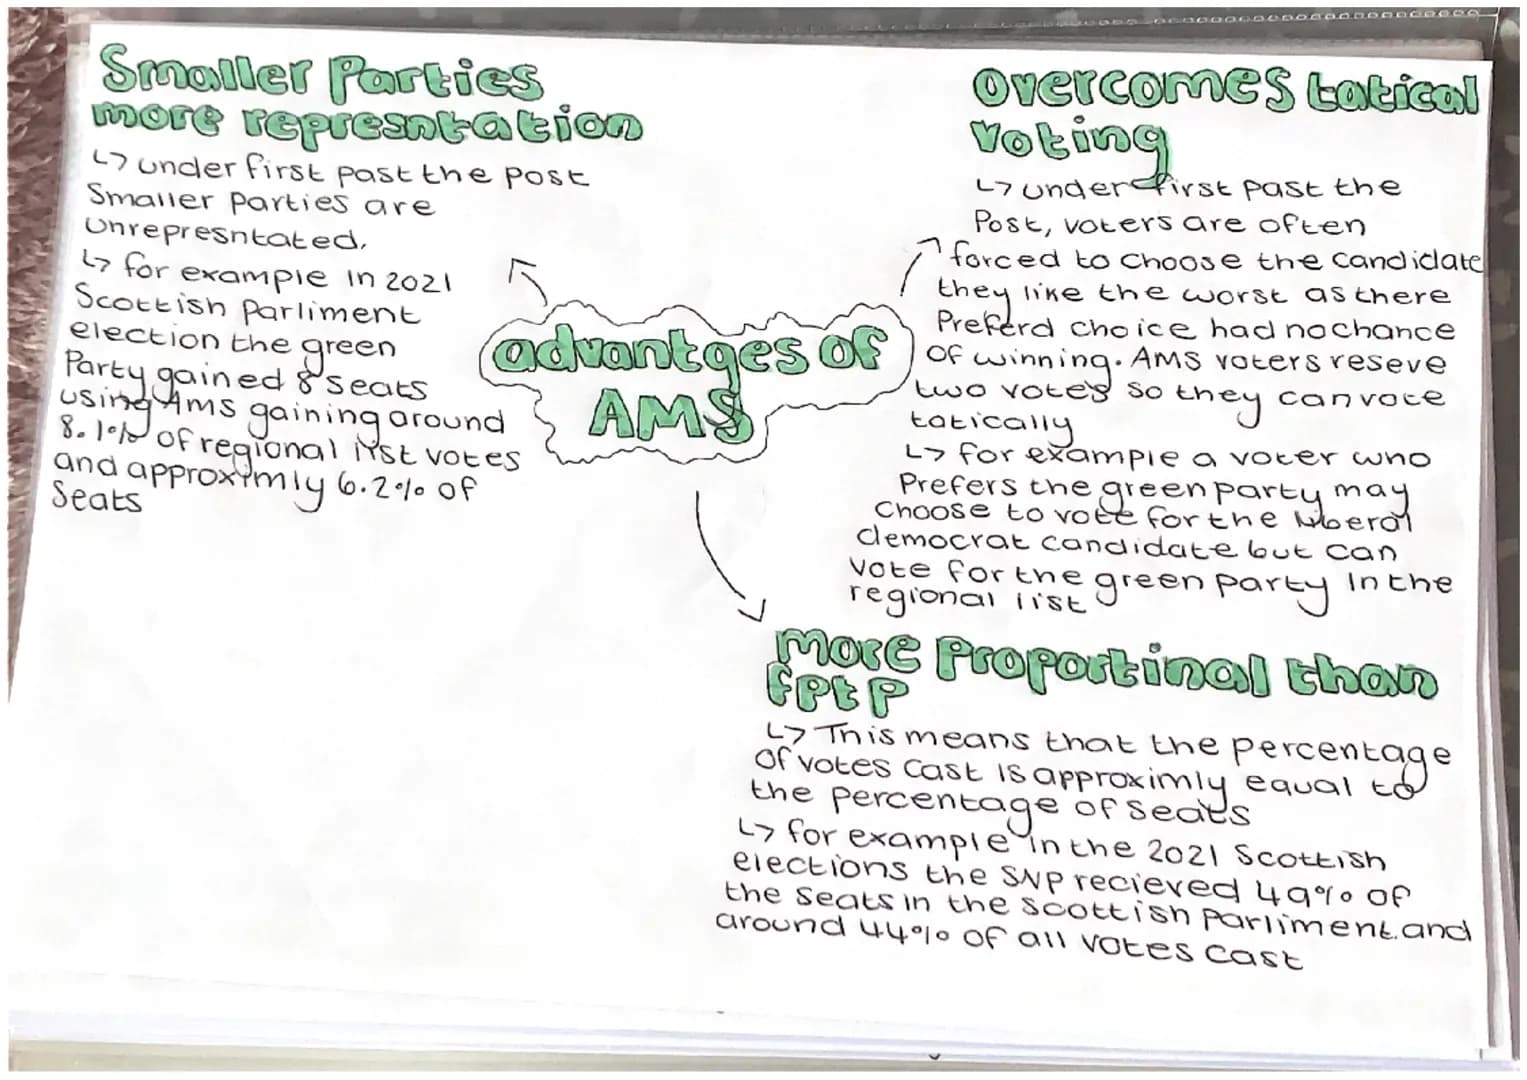 Smaller Parties
more represntation
↳ under first past the post
Smaller parties are
unrepresntated.
↳ for example in 2021
Scottish parliment
election the green
Party gained 8 seats
using AMS gaining around
8.1% of regional list votes
and approximly 6.2% of
Seats
advantges of
AMS
overcomes tatical
voting
↳ under first past the
Post, voters are often
forced to choose the candidate
they like the worst as there
Preferd choice had no chance
of winning. AMS voters reseve
two votes so they can vote
tatically
↳ for example a voter who
Prefers the green party may
choose to vote for the liberal
democrat candidate but can
vote for the green party in the
regional list
more proportinal than
fptp
↳ This means that the percentage
of votes cast is approximly equal to
the percentage of seats
↳ for example in the 2021 Scottish
elections the SNP recieved 49% of
the seats in the scottish parliment.and
around 44% of all votes cast